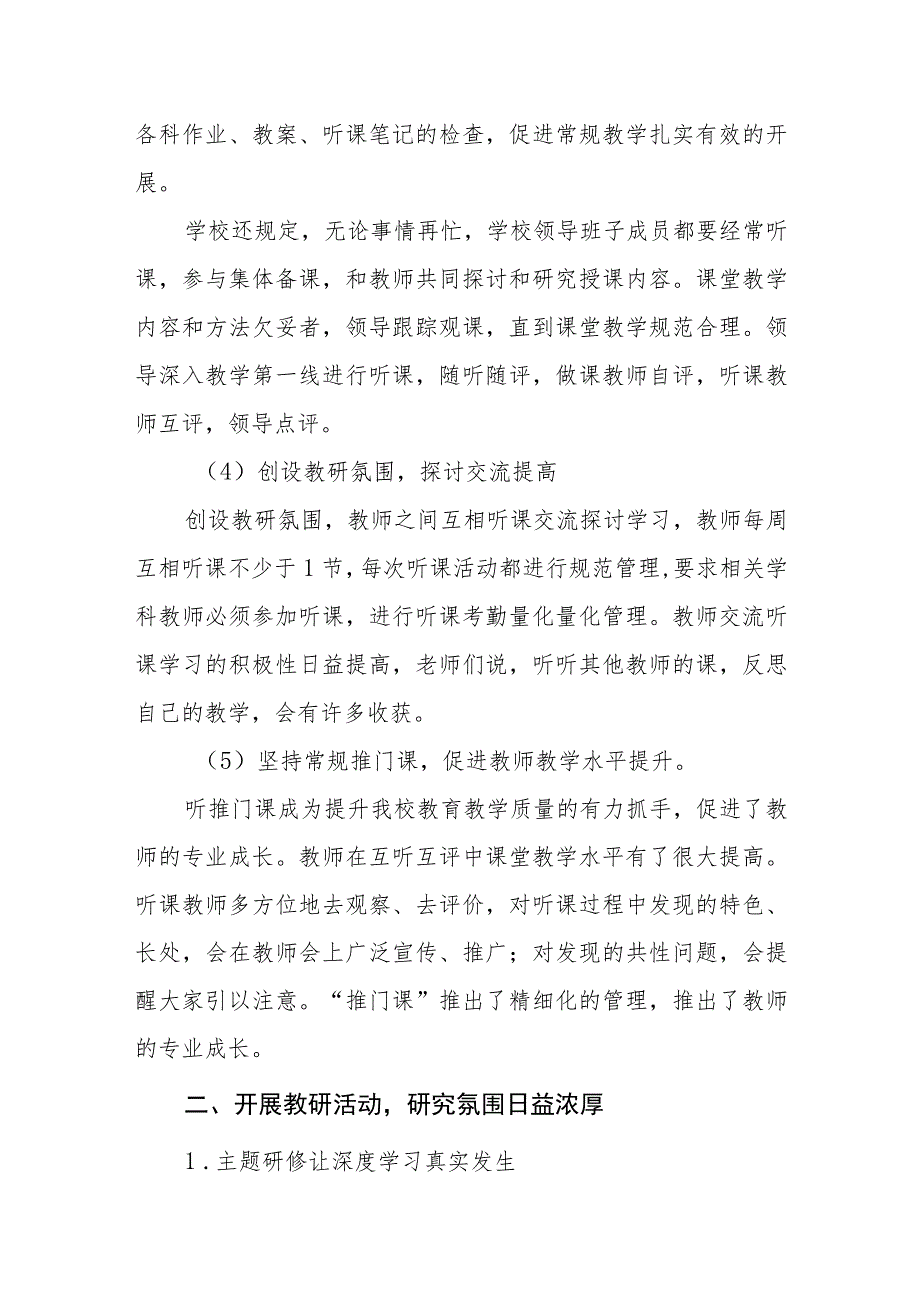 各科作业、教案、听课笔记的检查，促进常规教学扎实有效的开
展。
学校还规定，无论事情再忙，学校领导班子成员都要经常听
课，参与集体备课，和教师共同探讨和研究授课内容。课堂教学
内容和方法欠妥者，领导跟踪观课，直到课堂教学规范合理。领
导深入教学第一线进行听课，随听随评，做课教师自评，听课教
师互评，领导点评。
（4）创设教研氛围，探讨交流提高
创设教研氛围，教师之间互相听课交流探讨学习，教师每周
互相听课不少于1节，每次听课活动都进行规范管理,要求相关学
科教师必须参加听课，进行听课考勤量化量化管理。教师交流听
课学习的积极性日益提高，老师们说，听听其他教师的课，反思
自己的教学，会有许多收获。
（5）坚持常规推门课，促进教师教学水平提升。
听推门课成为提升我校教育教学质量的有力抓手，促进了教
师的专业成长。教师在互听互评中课堂教学水平有了很大提高。
听课教师多方位地去观察、去评价，对听课过程中发现的特色、
长处，会在教师会上广泛宣传、推广；对发现的共性问题，会提
醒大家引以注意。“推门课”推出了精细化的管理，推出了教师
的专业成长。
二、开展教研活动，研究氛围日益浓厚
1.主题研修让深度学习真实发生